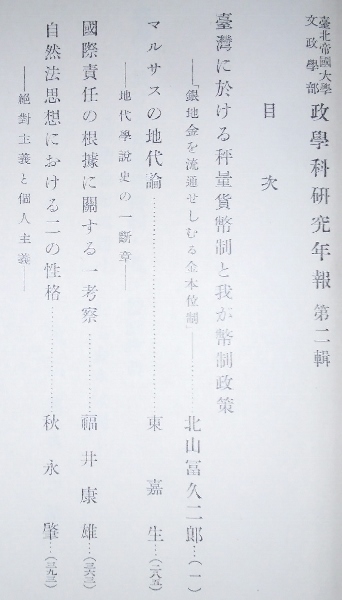 臺北帝國大學
文政學部
政學科研究年報 第二輯
目次
臺灣に於ける秤量貨幣制と我が幣制政策
――「銀地金を流通せしむる金本位制」――……北山冨久二郎…(一)
マルサスの地代論……………………東嘉生…(二八五)
――地代學說史の一斷章――
國際責任の根據に關する一考察…………福井康雄…(三六三)
自然法思想における二の性格…………秋永肇…(三九三)
――絕對主義と個人主義――